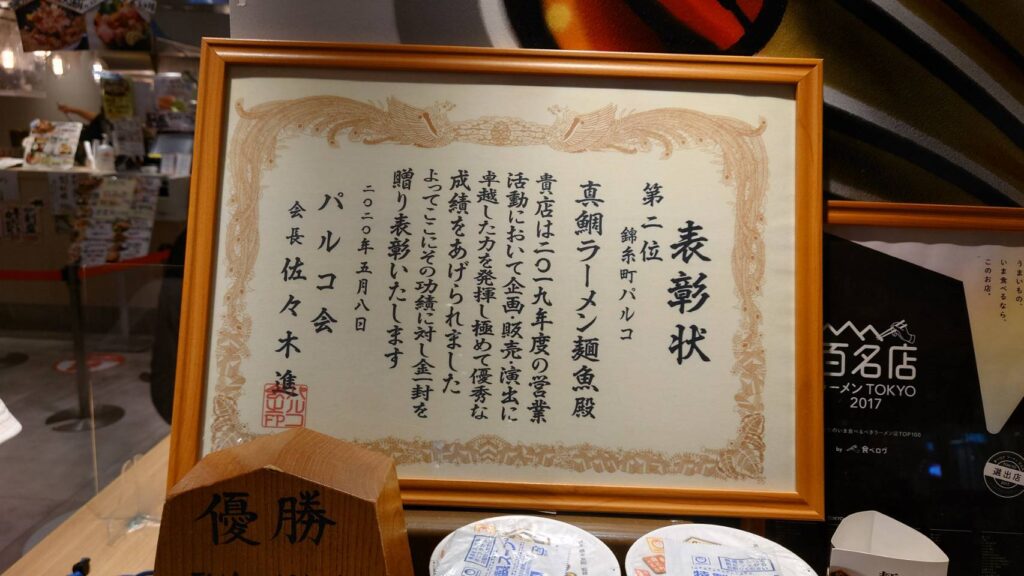 表彰状
第二位
錦糸町パルコ
真鯛ラーメン麺魚殿
貴店は二〇一九年度の営業
活動において企画・販売・演出に
卓越した力を発揮し極めて優秀な
成績をあげられました
よってここにその功績に対し金一封を
贈り表彰いたします
二〇二〇年五月八日
パルコ会
会長 佐々木 進
優勝
うまいもの、
いま食べるなら、
このお店。
百名店
ラーメン TOKYO
2017
by 食べログ
選出店